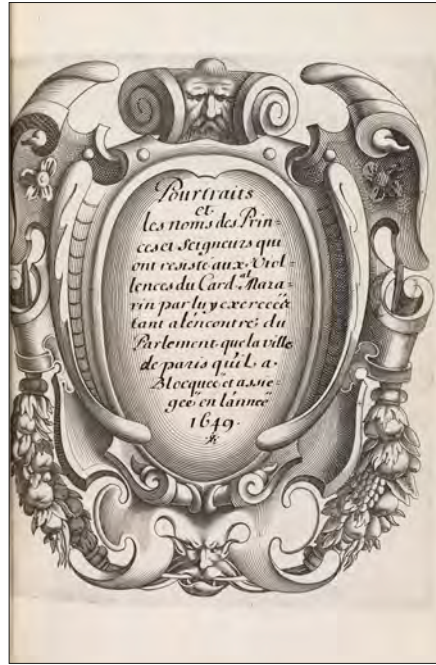 Pourtraits
et
les noms des Prin=
ces et Seigneurs qui
ont resisté aux Viol=
lences du Card.al Maza=
rin par luy exerceéés
tant a lencontre; du
Parlement que la ville
de paris qu'il a
Blocquee et assie=
geé en lanneé
1649.